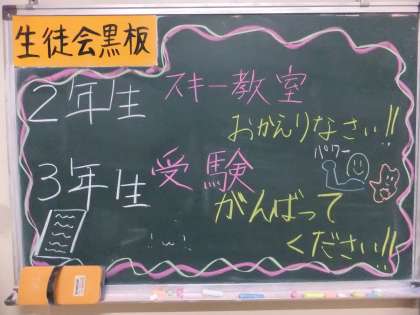 生徒会黒板
2年生 スキー教室
おかえりなさい!!
パワー
3年生 受験
がんばって
ください!!